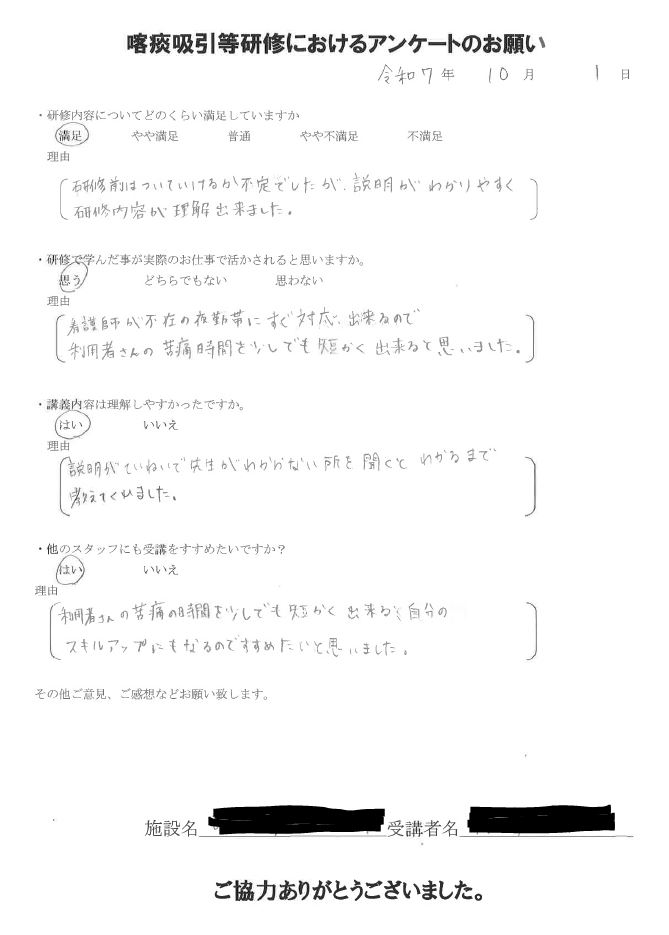 喀痰吸引等研修におけるアンケートのお願い
令和7年 10月 1日
・研修内容についてどのくらい満足していますか
満足 やや満足 普通 やや不満足 不満足
理由
研修前はついていけるか不定でしたが、説明がわかりやすく
研修内容が理解出来ました。
・研修で学んだ事が実際のお仕事で活かされると思いますか。
思う どちらでもない 思わない
理由
看護師が不在の夜勤帯にすぐ対応、出来るので
利用者さんの苦痛時間を少しでも短かく出来ると思いました。
・講義内容は理解しやすかったですか。
はい いいえ
理由
説明がていねいで先生がわからない所を聞くとわかるまで
教えてくれました。
・他のスタッフにも受講をすすめたいですか？
はい いいえ
理由
利用者さんの苦痛の時間を少しでも短かく出来ると自分の
スキルアップにもなるのですすめたいと思いました。
その他ご意見、ご感想などお願い致します。
施設名 受講者名
ご協力ありがとうございました。